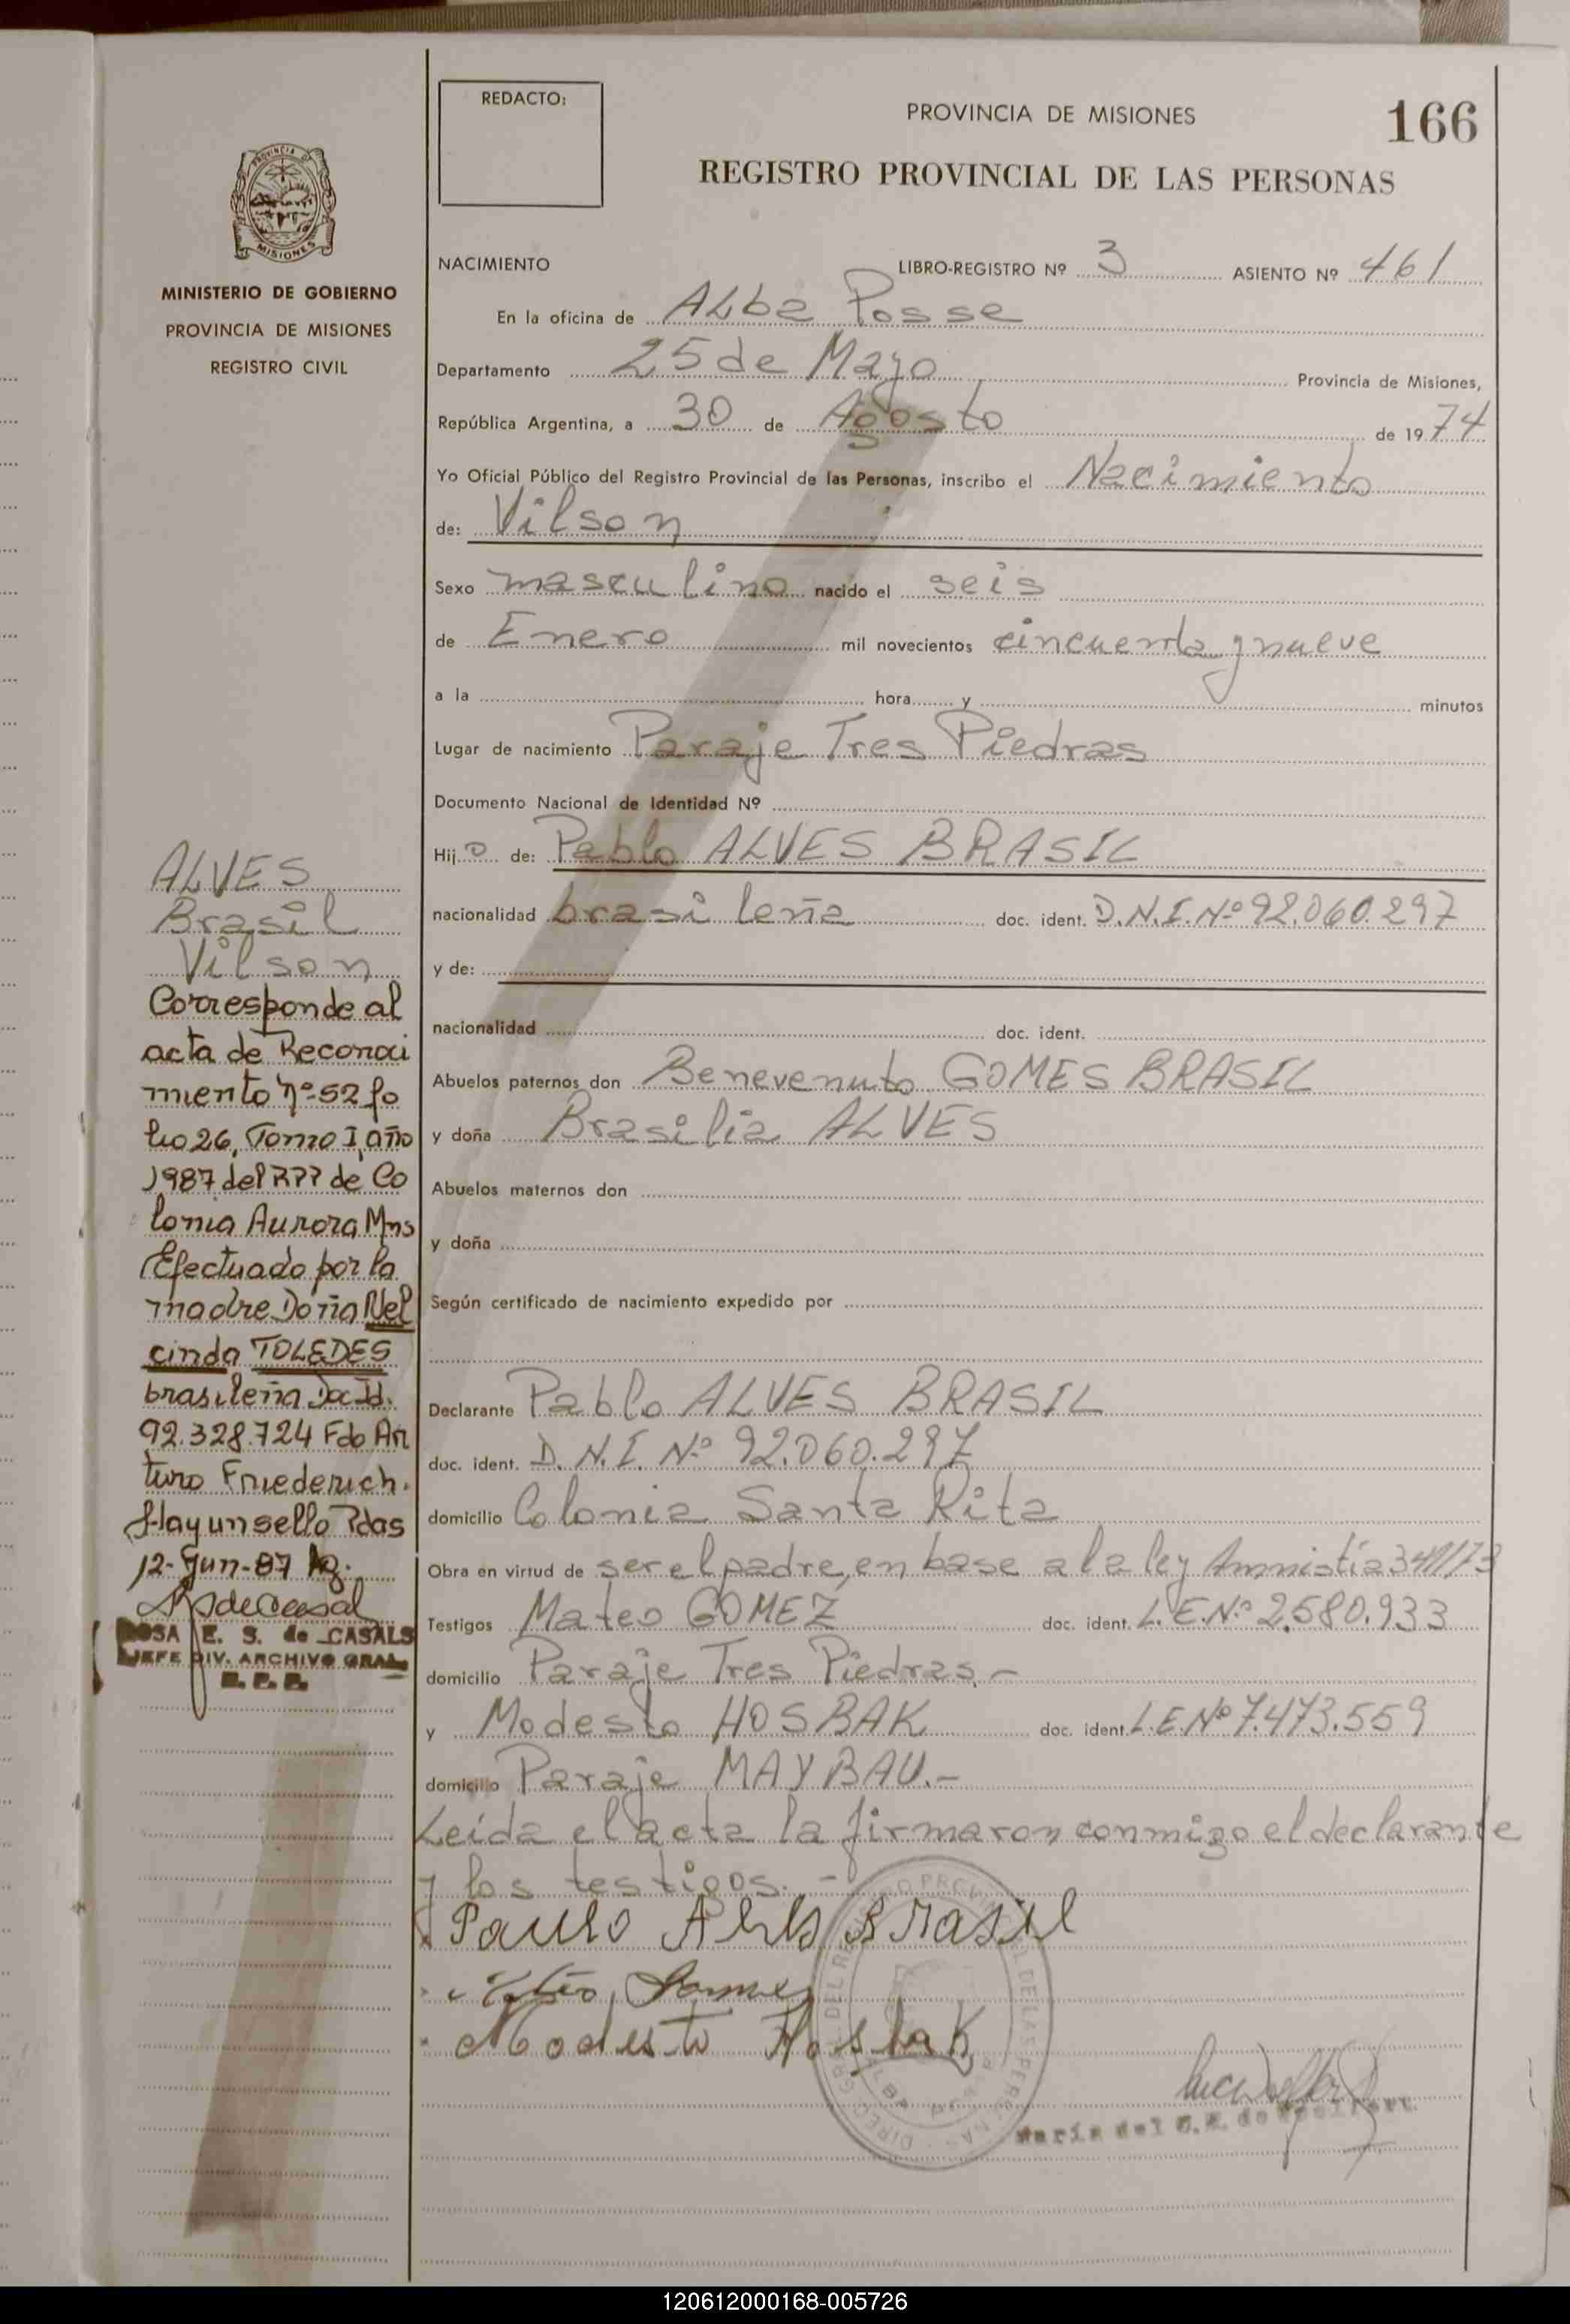 REDACTO:
PROVINCIA DE MISIONES
166
REGISTRO PROVINCIAL DE LAS PERSONAS
PROVINCIA DE
MISIONES
MINISTERIO DE GOBIERNO
PROVINCIA DE MISIONES
REGISTRO CIVIL
NACIMIENTO LIBRO-REGISTRO Nº 3 ASIENTO Nº 461
En la oficina de ALba Posse
Departamento 25 de Mayo Provincia de Misiones,
República Argentina, a 30 de Agosto de 1974
Yo Oficial Público del Registro Provincial de las Personas, inscribo el Nacimiento
de: Vilson
Sexo masculino nacido el seis
de Enero mil novecientos cincuenta y nueve
a la hora y minutos
Lugar de nacimiento Paraje Tres Piedras
Documento Nacional de Identidad Nº
Hijo de: Pablo ALVES BRASIL
nacionalidad brasileña doc. ident. D.N.I. Nº 92.060.297
y de:
nacionalidad doc. ident.
Abuelos paternos don Benevenuto GOMES BRASIL
y doña Brasilia ALVES
Abuelos maternos don
y doña
Según certificado de nacimiento expedido por
Declarante Pablo ALVES BRASIL
doc. ident. D.N.I. Nº 92.060.297
domicilio Colonia Santa Rita
Obra en virtud de ser el padre, en base a la ley Amnistía
Testigos Mateo GOMEZ doc. ident. L.E.Nº 2.580.933
domicilio Paraje Tres Piedras.-
y Modesto HOSBAK doc. ident. L.E.Nº 7.473.559
domicilio Paraje MAYBAU.-
Leída el acta la firmaron conmigo el declarante
y los testigos.-
Paulo Alves Brasil
Modesto Hosbak
María del
ALVES
Brasil
Vilson
Corresponde al
acta de Reconoci
miento nº 52 fo
lio 26, Tomo I, año
1987 del RPP de Co
lonia Aurora Mns
Efectuado por la
madre Doña Nel
cinda TOLEDES
brasileña Doc Id.
92.328.724 Fdo Ar
turo Friederich.
Hay un sello Pdas
12-Jun-87
ROSA E. S. de CASALS
JEFE DIV. ARCHIVO GRAL.
R. P. P.
120612000168-005726